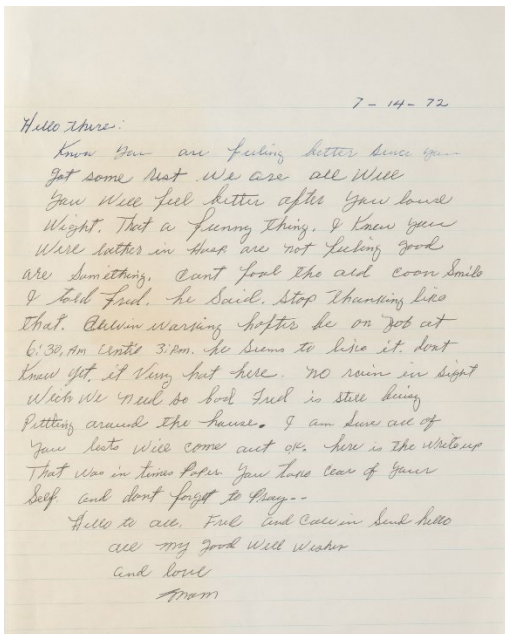 7-14-72
Hello there:
Know you are feeling better since you
got some rest we are all well
You will feel better after you louse
Wight. That a funny thing. I Knew you
Were either in Hosp are not feeling good
are Something. Cant fool the old coon Smile
I told Fred. he Said. Stop Thanking like
that. Calvin warking hafter be on Job at
6:30, Am Until 3:Pm. he Seems to like it. dont
Know yet. it Very hot here. no rain in sight
Wich We Need so bad Fred is still
Pittling around the house. I am Sure all of
You tests will come out OK. here is the write up
That was in times Paper You take cear of your
Self. and dont forget to Pray--
Hello to all. Fred and Calvin Send hello
all my good Well Wishes
and love
Mam